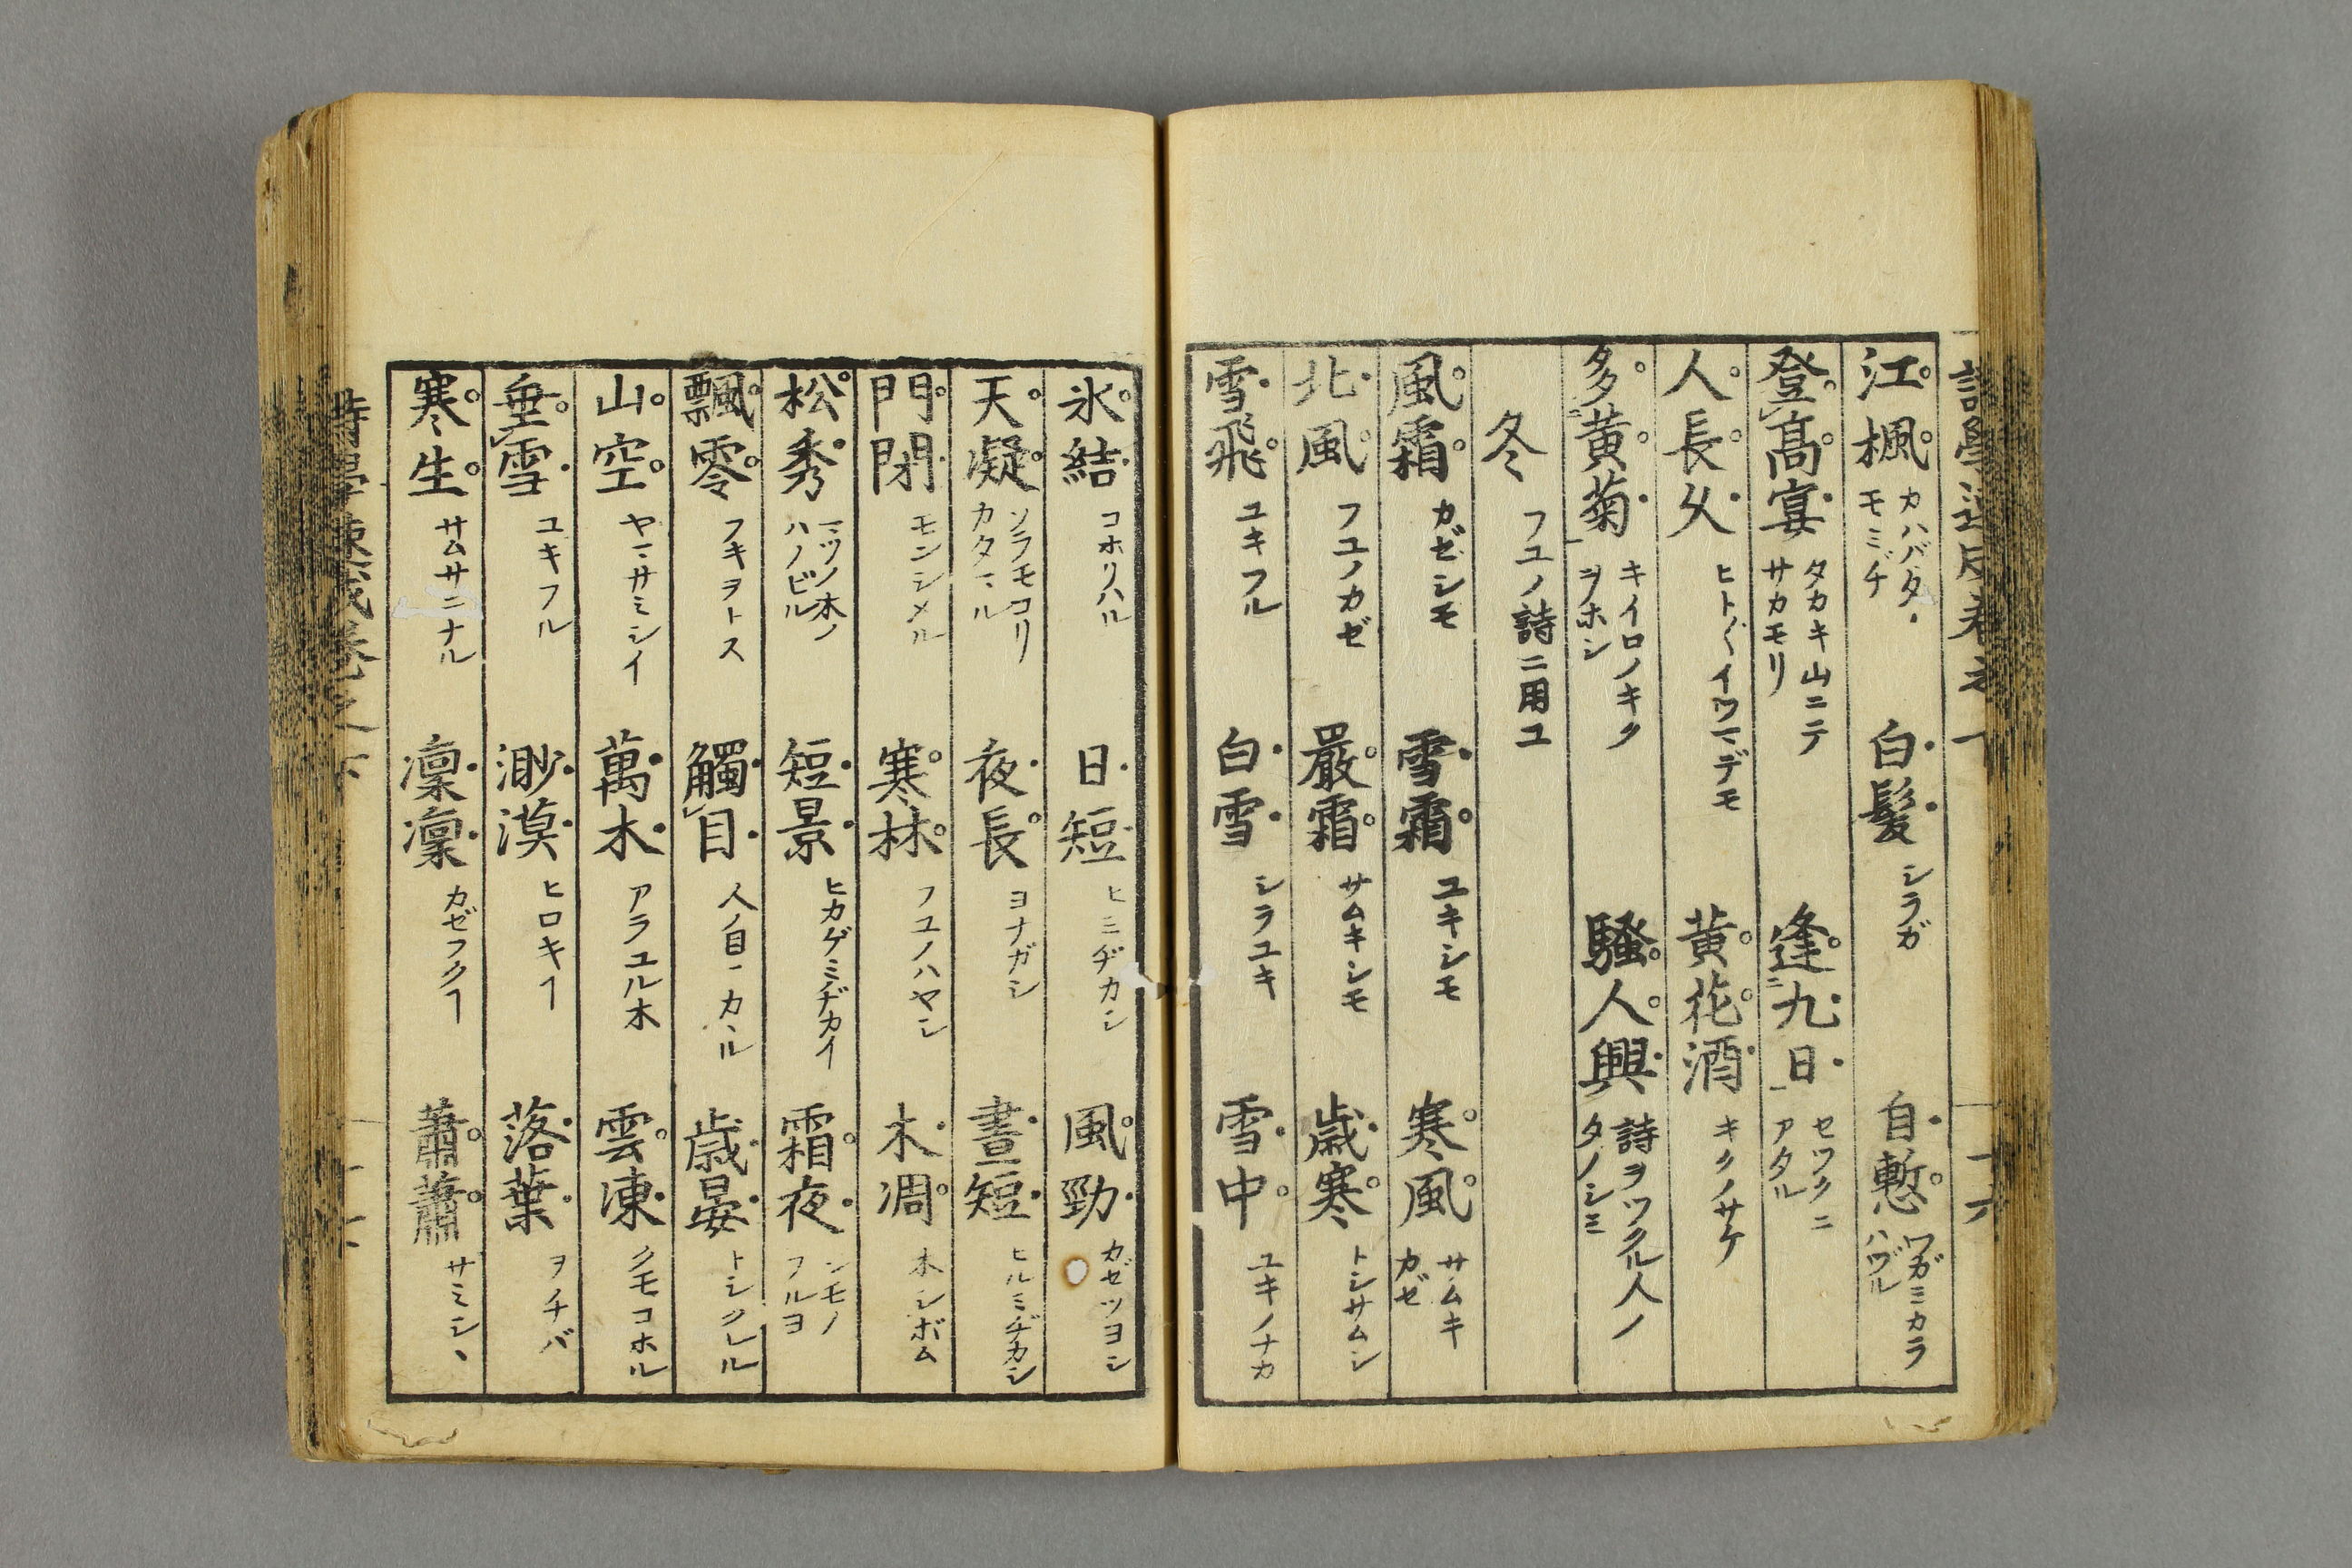 江楓 カハバタノモミヂ 白髪 シラガ 自慙 ワガミカラハヅル
登高宴 タカキ山ニテサカモリ 逢九日 セツクニアタル
人長久 ヒト〴〵イツマデモ 黄花酒 キクノサケ
多黄菊 キイロノキクヲホシ 騒人興 詩ヲツクル人ノタノシミ
冬 フユノ詩ニ用ユ
風霜 カゼシモ 雪霜 ユキシモ 寒風 サムキカゼ
北風 フユノカゼ 嚴霜 サムキシモ 歳寒 トシサムシ
雪飛 ユキフル 白雪 シラユキ 雪中 ユキノナカ
氷結 コホリハル 日短 ヒミヂカシ 風勁 カゼツヨシ
天凝 ソラモコリカタマル 夜長 ヨナガシ 晝短 ヒルミヂカシ
門閉 モンシメル 寒林 フユノハヤシ 木凋 木シボム
松秀 マツノ木ノハノビル 短景 ヒカゲミヂカイ 霜夜 シモノフルヨ
飄零 フキヲトス 觸目 人ノ目ニカヽル 歳晏 トシクレル
山空 ヤマサミシイ 萬木 アラユル木 雲凍 クモコホル
垂雪 ユキフル 渺漠 ヒロキヿ 落葉 ヲチバ
寒生 サムサニナル 凛凛 カゼフクヿ 蕭蕭 サミシヽ